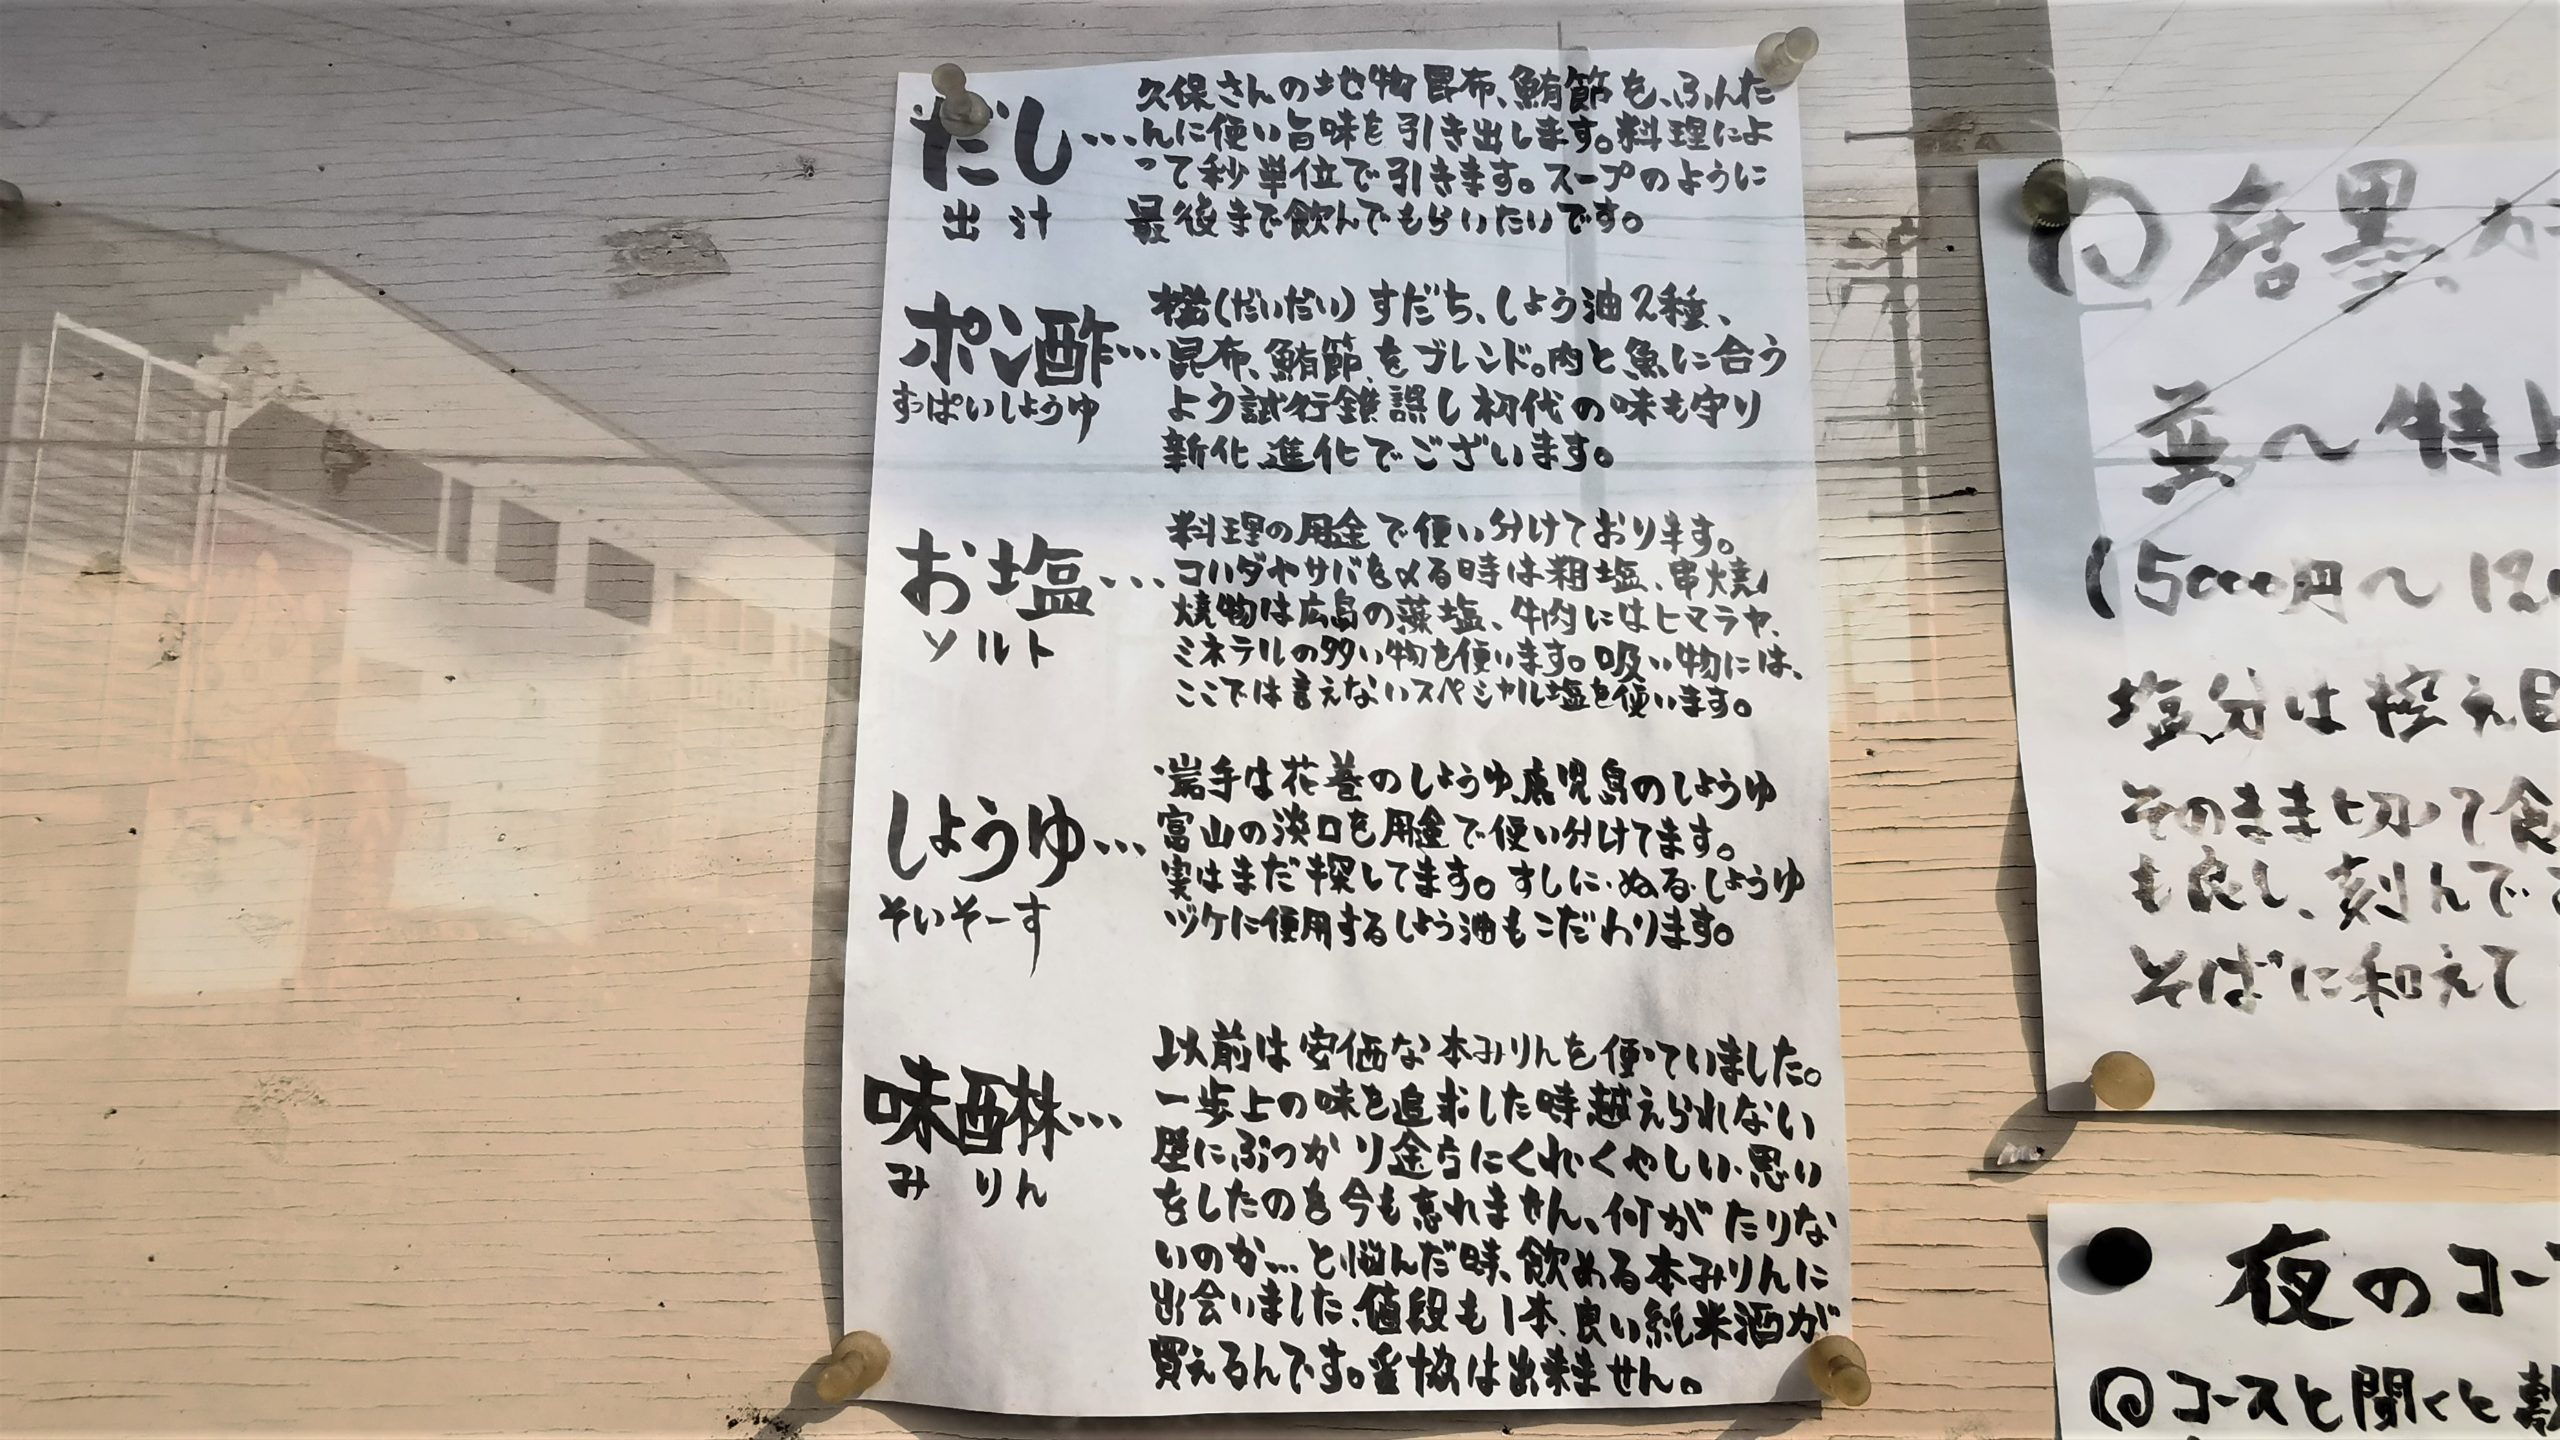 だし…
出汁
久保さんの地物昆布、鮪節を、ふんだ
んに使い旨味を引き出します。料理によ
って秒単位で引きます。スープのように
最後まで飲んでもらいたいです。
ポン酢…
すっぱいしょうゆ
橙(だいだい)すだち、しょう油2種、
昆布、鮪節、をブレンド。肉と魚に合う
よう試行錯誤し初代の味も守り
新化、進化でございます。
お塩…
ソルト
料理の用途で使い分けております。
コハダやサバを〆る時は粗塩、串焼、
焼物は広島の藻塩、牛肉にはヒマラヤ、
ミネラルの多い物を使います。吸い物には、
ここでは言えないスペシャル塩を使います。
しょうゆ…
そいそーす
岩手は花巻のしょうゆ、鹿児島のしょうゆ
富山の淡口を用途で使い分けてます。
実はまだ探してます。すしに・ぬる・しょうゆ
ヅケに使用するしょう油もこだわります。
味醂…
みりん
以前は安価な本みりんを使っていました。
一歩上の味を追求した時越えられない
壁にぶつかり途方にくれ・くやしい思い
をしたのを今も忘れません、何がたりな
いのか…と悩んだ時、飲める本みりんに
出会いました、値段も1本、良い純米酒が
買えるんです。妥協は出来ません。
唐墨、か
並〜特上
(5000円〜12
塩分は控え目
そのまま切って食
も良し、刻んで
そばに和えて
夜のコー
コースと聞くと